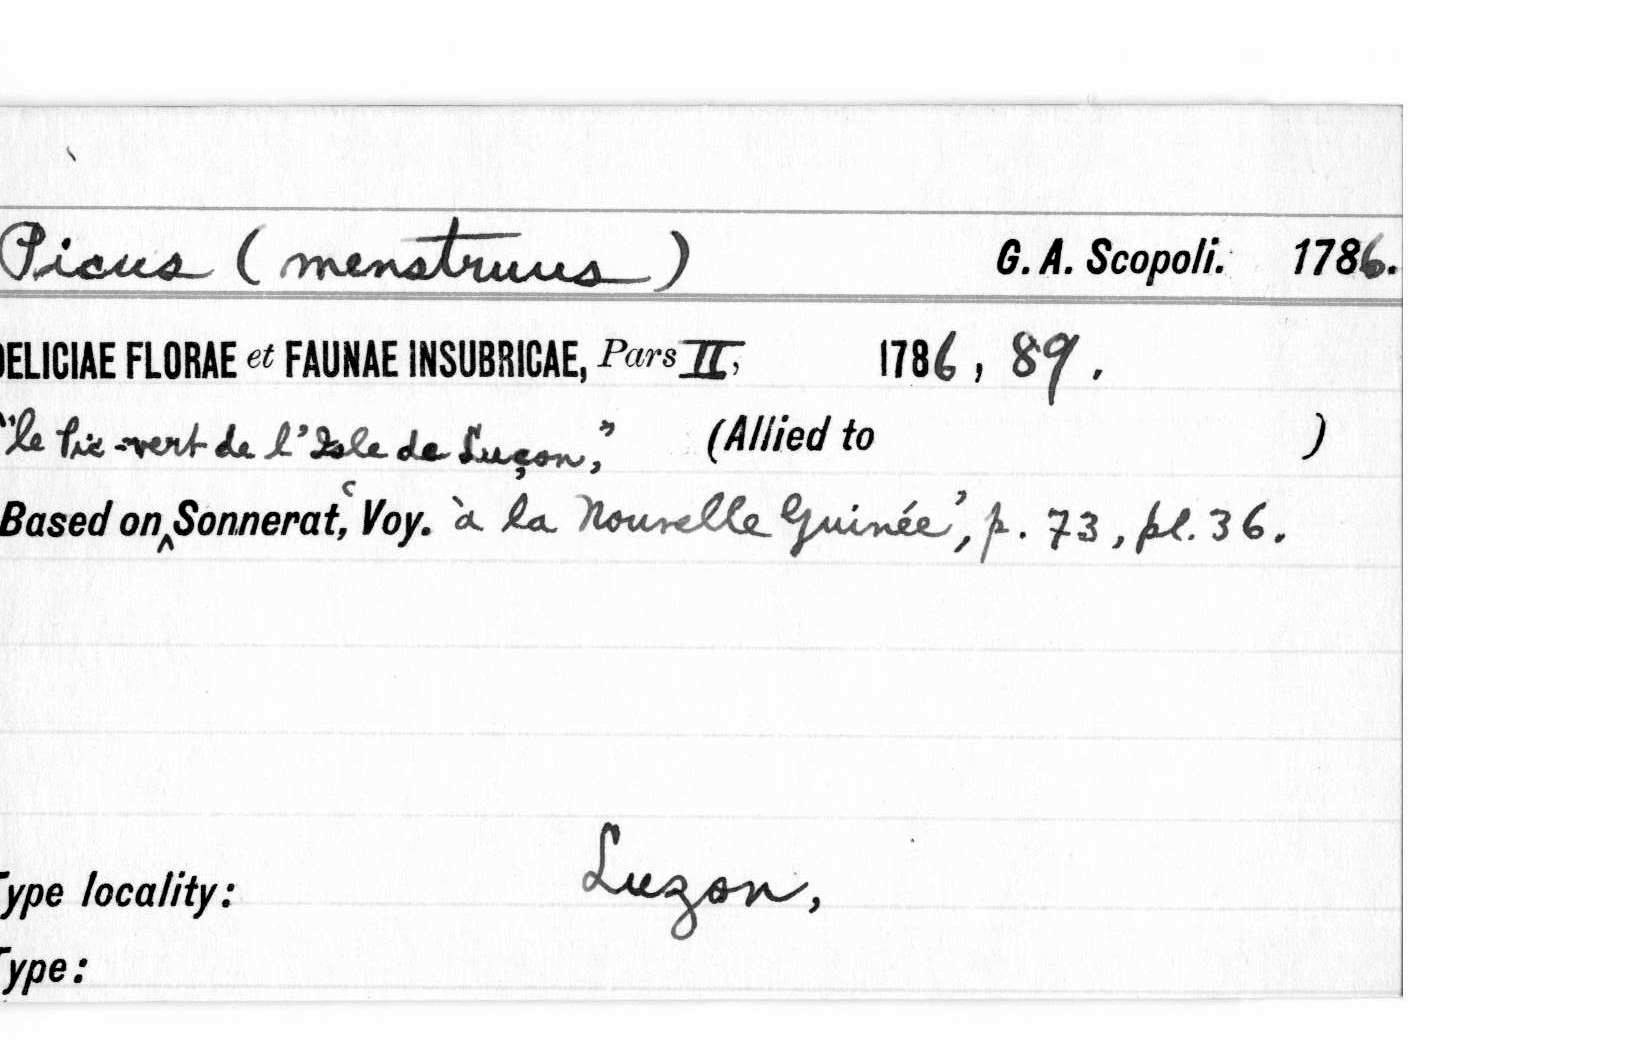 Picus (menstruus) G. A. Scopoli. 1786.
DELICIAE FLORAE et FAUNAE INSUBRICAE, Pars II, 1786, 89.
"le Pic-vert de l'Isle de Luçon," (Allied to )
Based on ^ Sonnerat, ‘Voy. à la Nouvelle Guinée’, p. 73, pl. 36.
Type locality: Luzon,
Type: